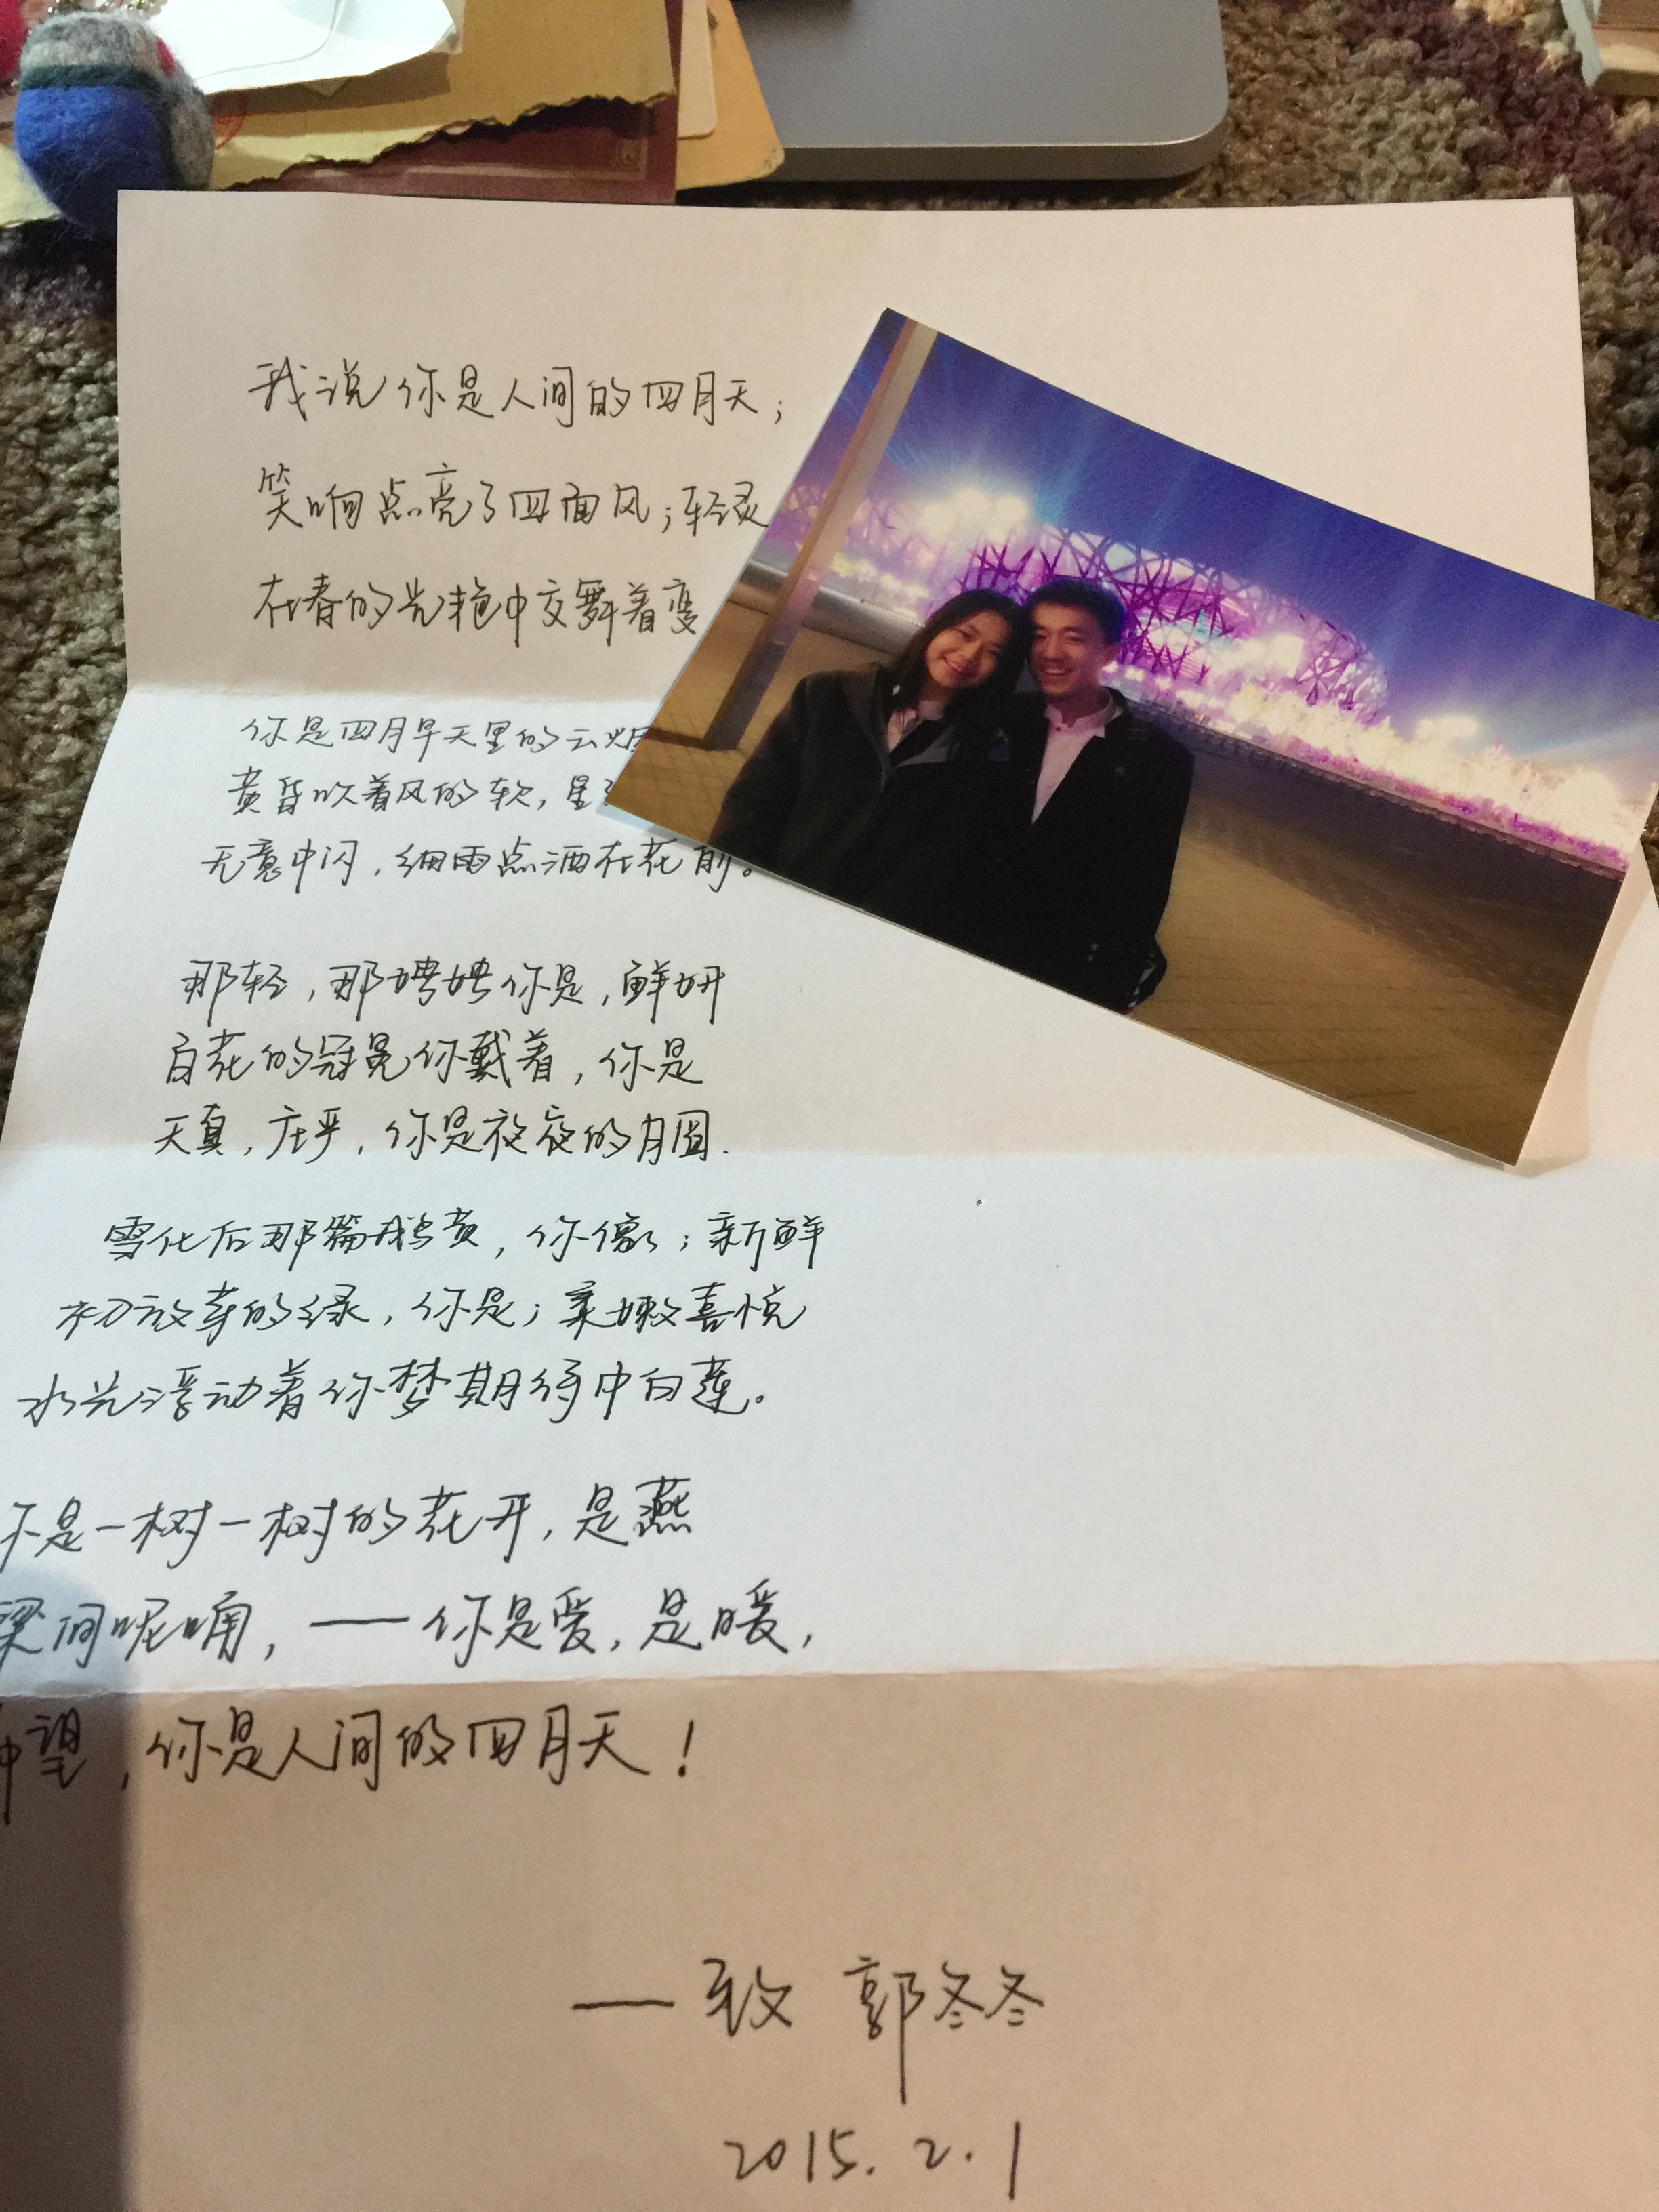 我说你是人间的四月天；
笑响点亮了四面风；轻灵
在春的光艳中交舞着变
你是四月早天里的云烟
黄昏吹着风的软，星
无意中闪，细雨点洒在花前。
那轻，那娉婷你是，鲜妍
百花的冠冕你戴着，你是
天真，庄严，你是夜夜的月圆.
雪化后那篇鹅黄，你像；新鲜
初放芽的绿，你是；柔嫩喜悦
水光浮动着你梦期待中白莲。
你是一树一树的花开，是燕
梁间呢喃，——你是爱，是暖，
望，你是人间的四月天！
—致 郭冬冬
2015.2.1